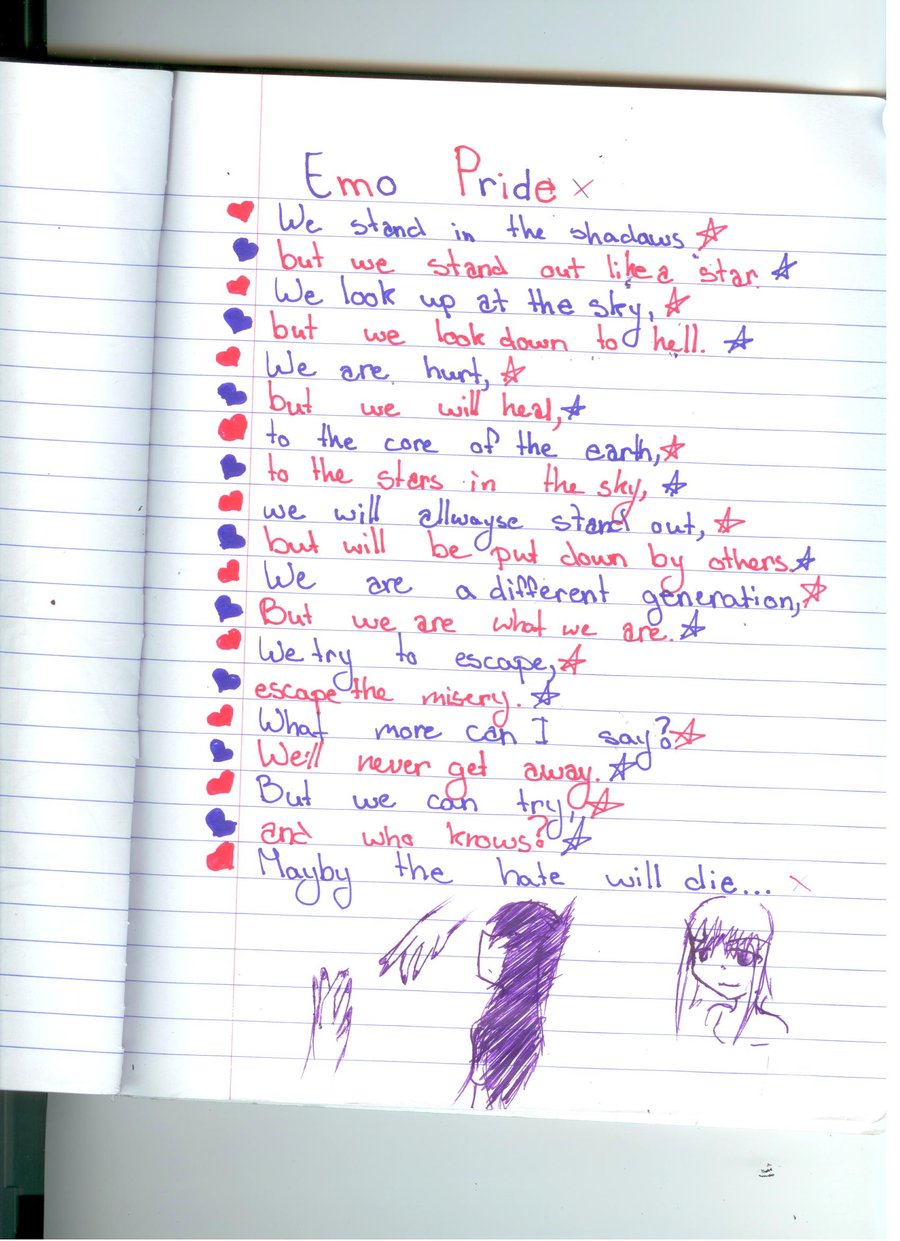 Emo Pride x
We stand in the shadaws
but we stand out like a star.
We look up at the sky,
but we look down to hell.
We are hurt,
but we will heal,
to the core of the earth,
to the sters in the sky,
we will allwayse stand out,
but will be put down by others.
We are a different generation,
But we are what we are.
We try to escape,
escape the misery.
What more can I say?
We'll never get away.
But we can try,
and who knows?
Mayby the hate will die... x